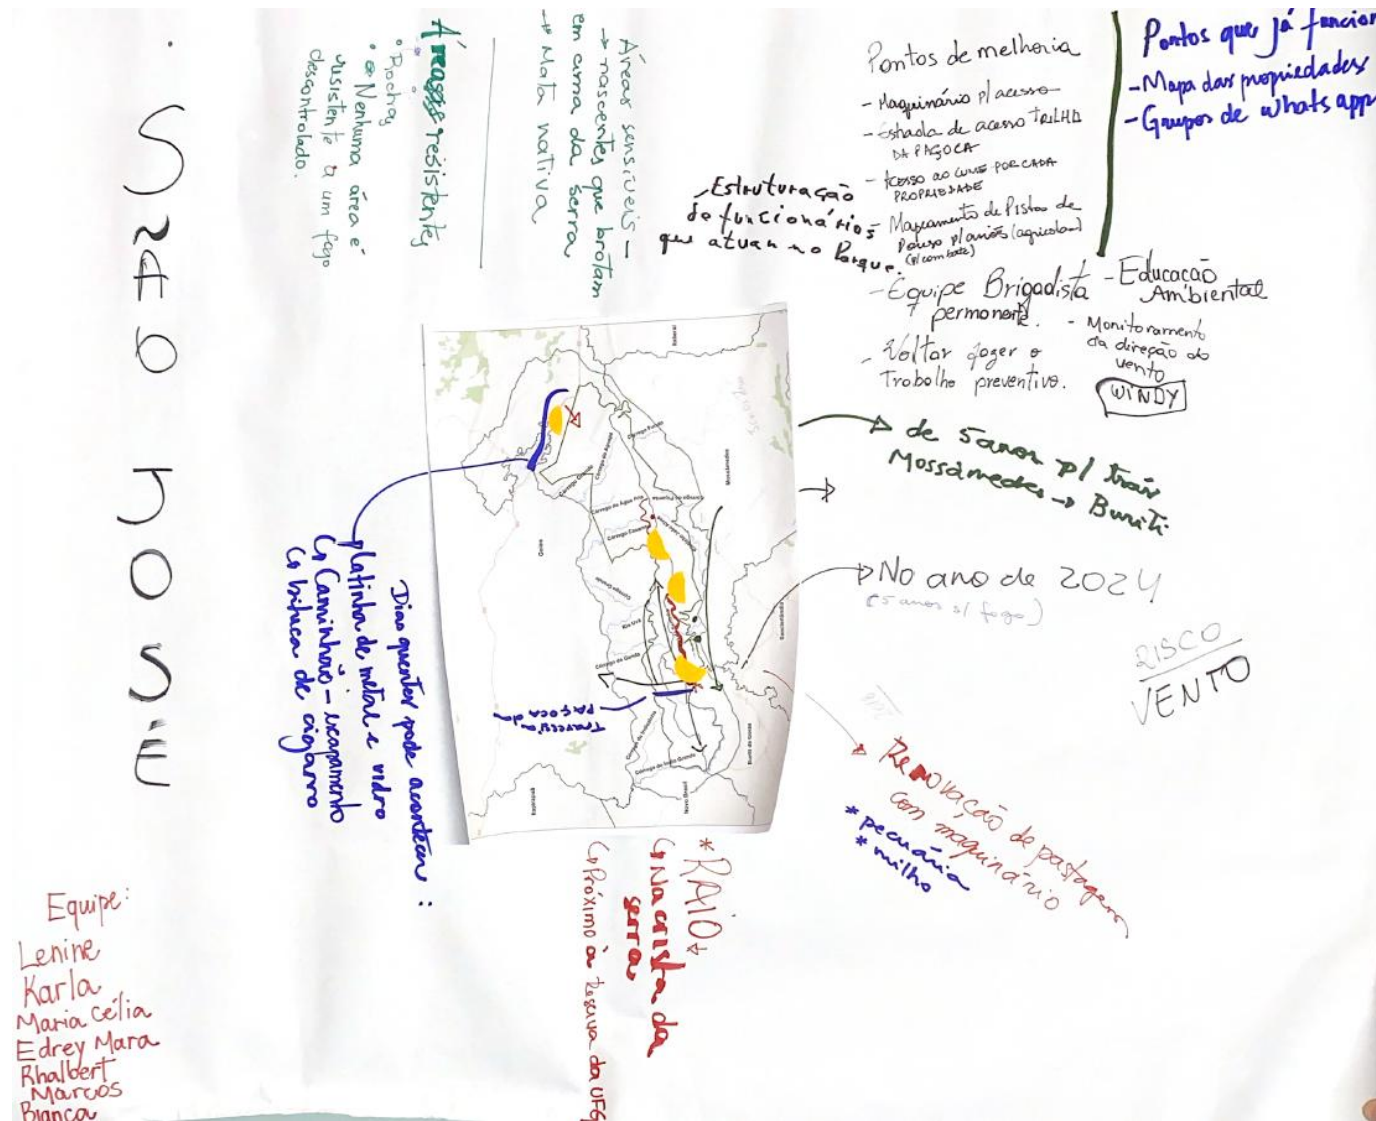 SÃO JOSÉ
Áreas resistentes
• Rochas
• Nenhuma área é
resistente a um fogo
descontrolado.
Áreas sensíveis -
→ nascentes que brotam
em cima da serra
→ Mata nativa
Pontos de melhoria
- Maquinário p/ acesso
- Estrada de acesso TRILHA
DA PAÇOCA
- ACESSO AO CUME POR CADA
PROPRIEDADE
- Mapeamento de Pistas de
Pouso p/ aviões (agrícolas)
(p/ combate)
- Estruturação
de funcionários
que atuam no Parque.
- Equipe Brigadista
permanente.
- Voltar fazer o
Trabalho preventivo.
- Educação
Ambiental
- Monitoramento
da direção do
vento
WINDY
Pontos que já funcion
- Mapa das propriedades
- Grupos de whatsapp
de 5 anos p/ trás
Mossamedes → Buriti
No ano de 2024
(5 anos s/ fogo)
RISCO
VENTO
Renovação de pastagem
com maquinário
* pecuária
* milho
Dias quentes pode acontecer:
platinha de metal e vidro
Caminhão - escapamento
bituca de cigarro
* RAIO
Na crista da
serra
Próximo à Reserva da UFG
Travessia
PAÇOCA da
Goiás
Mossâmedes
Córrego da Água Fria
Rio Uvá
Buriti de Goiás
Novo Brasil
Itapirapuã
Equipe:
Lenine
Karla
Maria Célia
Edrey Mara
Rhalbert
Marcos
Bianca